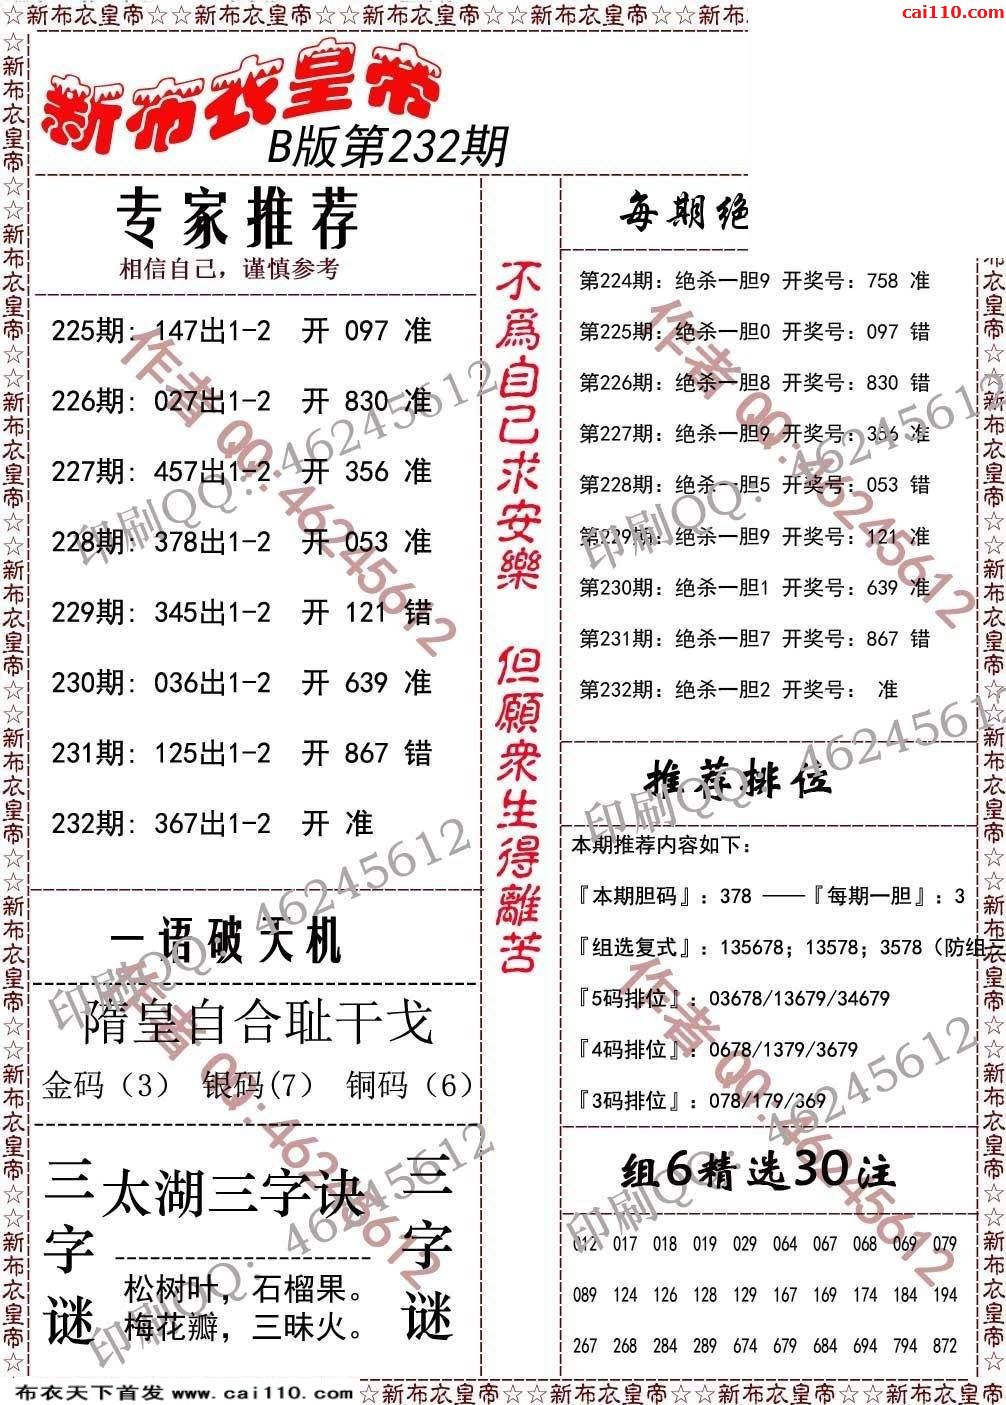 ☆新布衣皇帝☆☆新布衣皇帝☆☆新布衣皇帝☆☆新布衣皇帝☆☆新布
cai110.com
新布衣皇帝
B版第232期
专家推荐
相信自己，谨慎参考
225期: 147出1-2 开 097 准
226期: 027出1-2 开 830 准
227期: 457出1-2 开 356 准
228期: 378出1-2 开 053 准
229期: 345出1-2 开 121 错
230期: 036出1-2 开 639 准
231期: 125出1-2 开 867 错
232期: 367出1-2 开 准
一语破天机
隋皇自合耻干戈
金码（3） 银码(7) 铜码（6）
三字谜
太湖三字诀
松树叶，石榴果。
梅花瓣，三昧火。
三字谜
不為自己求安樂 但願衆生得離苦
每期绝
第224期：绝杀一胆9 开奖号：758 准
第225期：绝杀一胆0 开奖号：097 错
第226期：绝杀一胆8 开奖号：830 错
第227期：绝杀一胆9 开奖号：356 准
第228期：绝杀一胆5 开奖号：053 错
第229期：绝杀一胆9 开奖号：121 准
第230期：绝杀一胆1 开奖号：639 准
第231期：绝杀一胆7 开奖号：867 错
第232期：绝杀一胆2 开奖号： 准
推荐排位
本期推荐内容如下：
『本期胆码』：378 ——『每期一胆』：3
『组选复式』：135678；13578；3578（防组三
『5码排位』：03678/13679/34679
『4码排位』：0678/1379/3679
『3码排位』：078/179/369
组6精选30注
012 017 018 019 029 064 067 068 069 079
089 124 126 128 129 167 169 174 184 194
267 268 284 289 674 679 684 694 794 872
作者 QQ:46245612
印刷QQ：46245612
作者 QQ:46245612
印刷QQ：46245612
印刷QQ：46245612
印刷QQ：46245612
作者 QQ:46245612
作者 QQ:46245612
印刷QQ：46245612
印刷QQ：46245612
布衣天下首发 www.cai110.com
☆新布衣皇帝☆☆新布衣皇帝☆☆新布衣皇帝☆☆新布衣皇帝☆